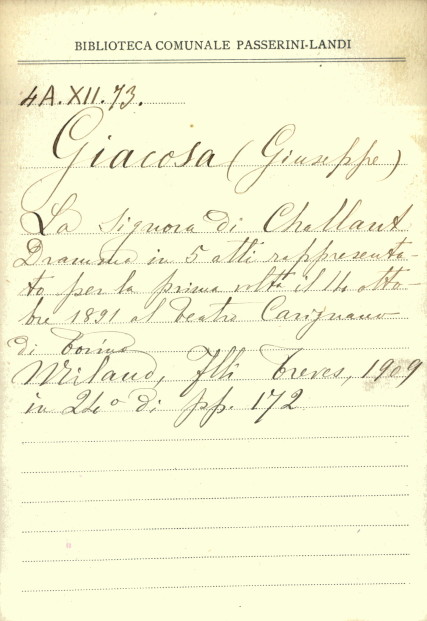 BIBLIOTECA COMUNALE PASSERINI-LANDI
4A.XII.73.
Giacosa (Giuseppe)
La signora di Challant
Dramma in 5 atti rappresenta-
to per la prima volta il 14 otto-
bre 1891 al teatro Carignano
di Torino
Milano, Flli Treves, 1909
in 24° di pp. 172